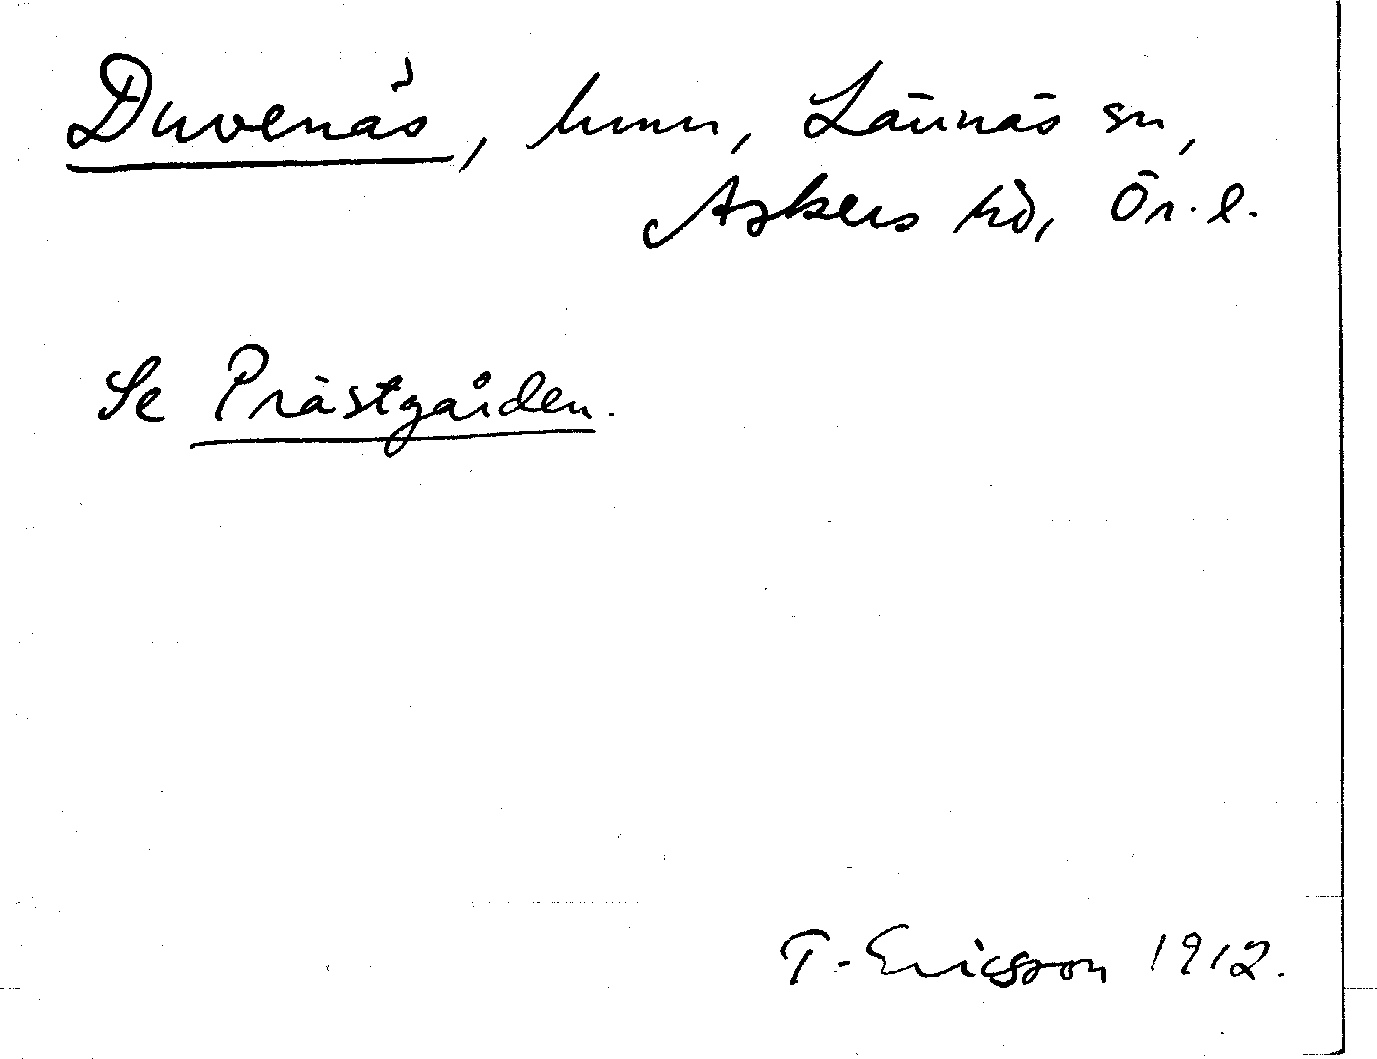 Duvenäs, hmn, Lännäs sn,
Askers hd, Ör. l.
Se Prästgården.
T. Ericsson 1912.